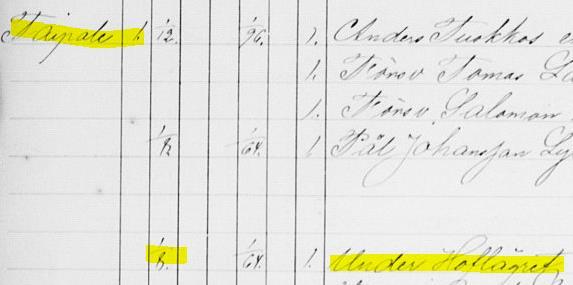 Taipale 1. 1/12. 1/96. 1. Anders Tuokkos
1. Försv Tomas
1. Försv. Salomon
1/8 1/64. 1 Pål Johansson
1/8. 1/64. 1. Under Hoflägret